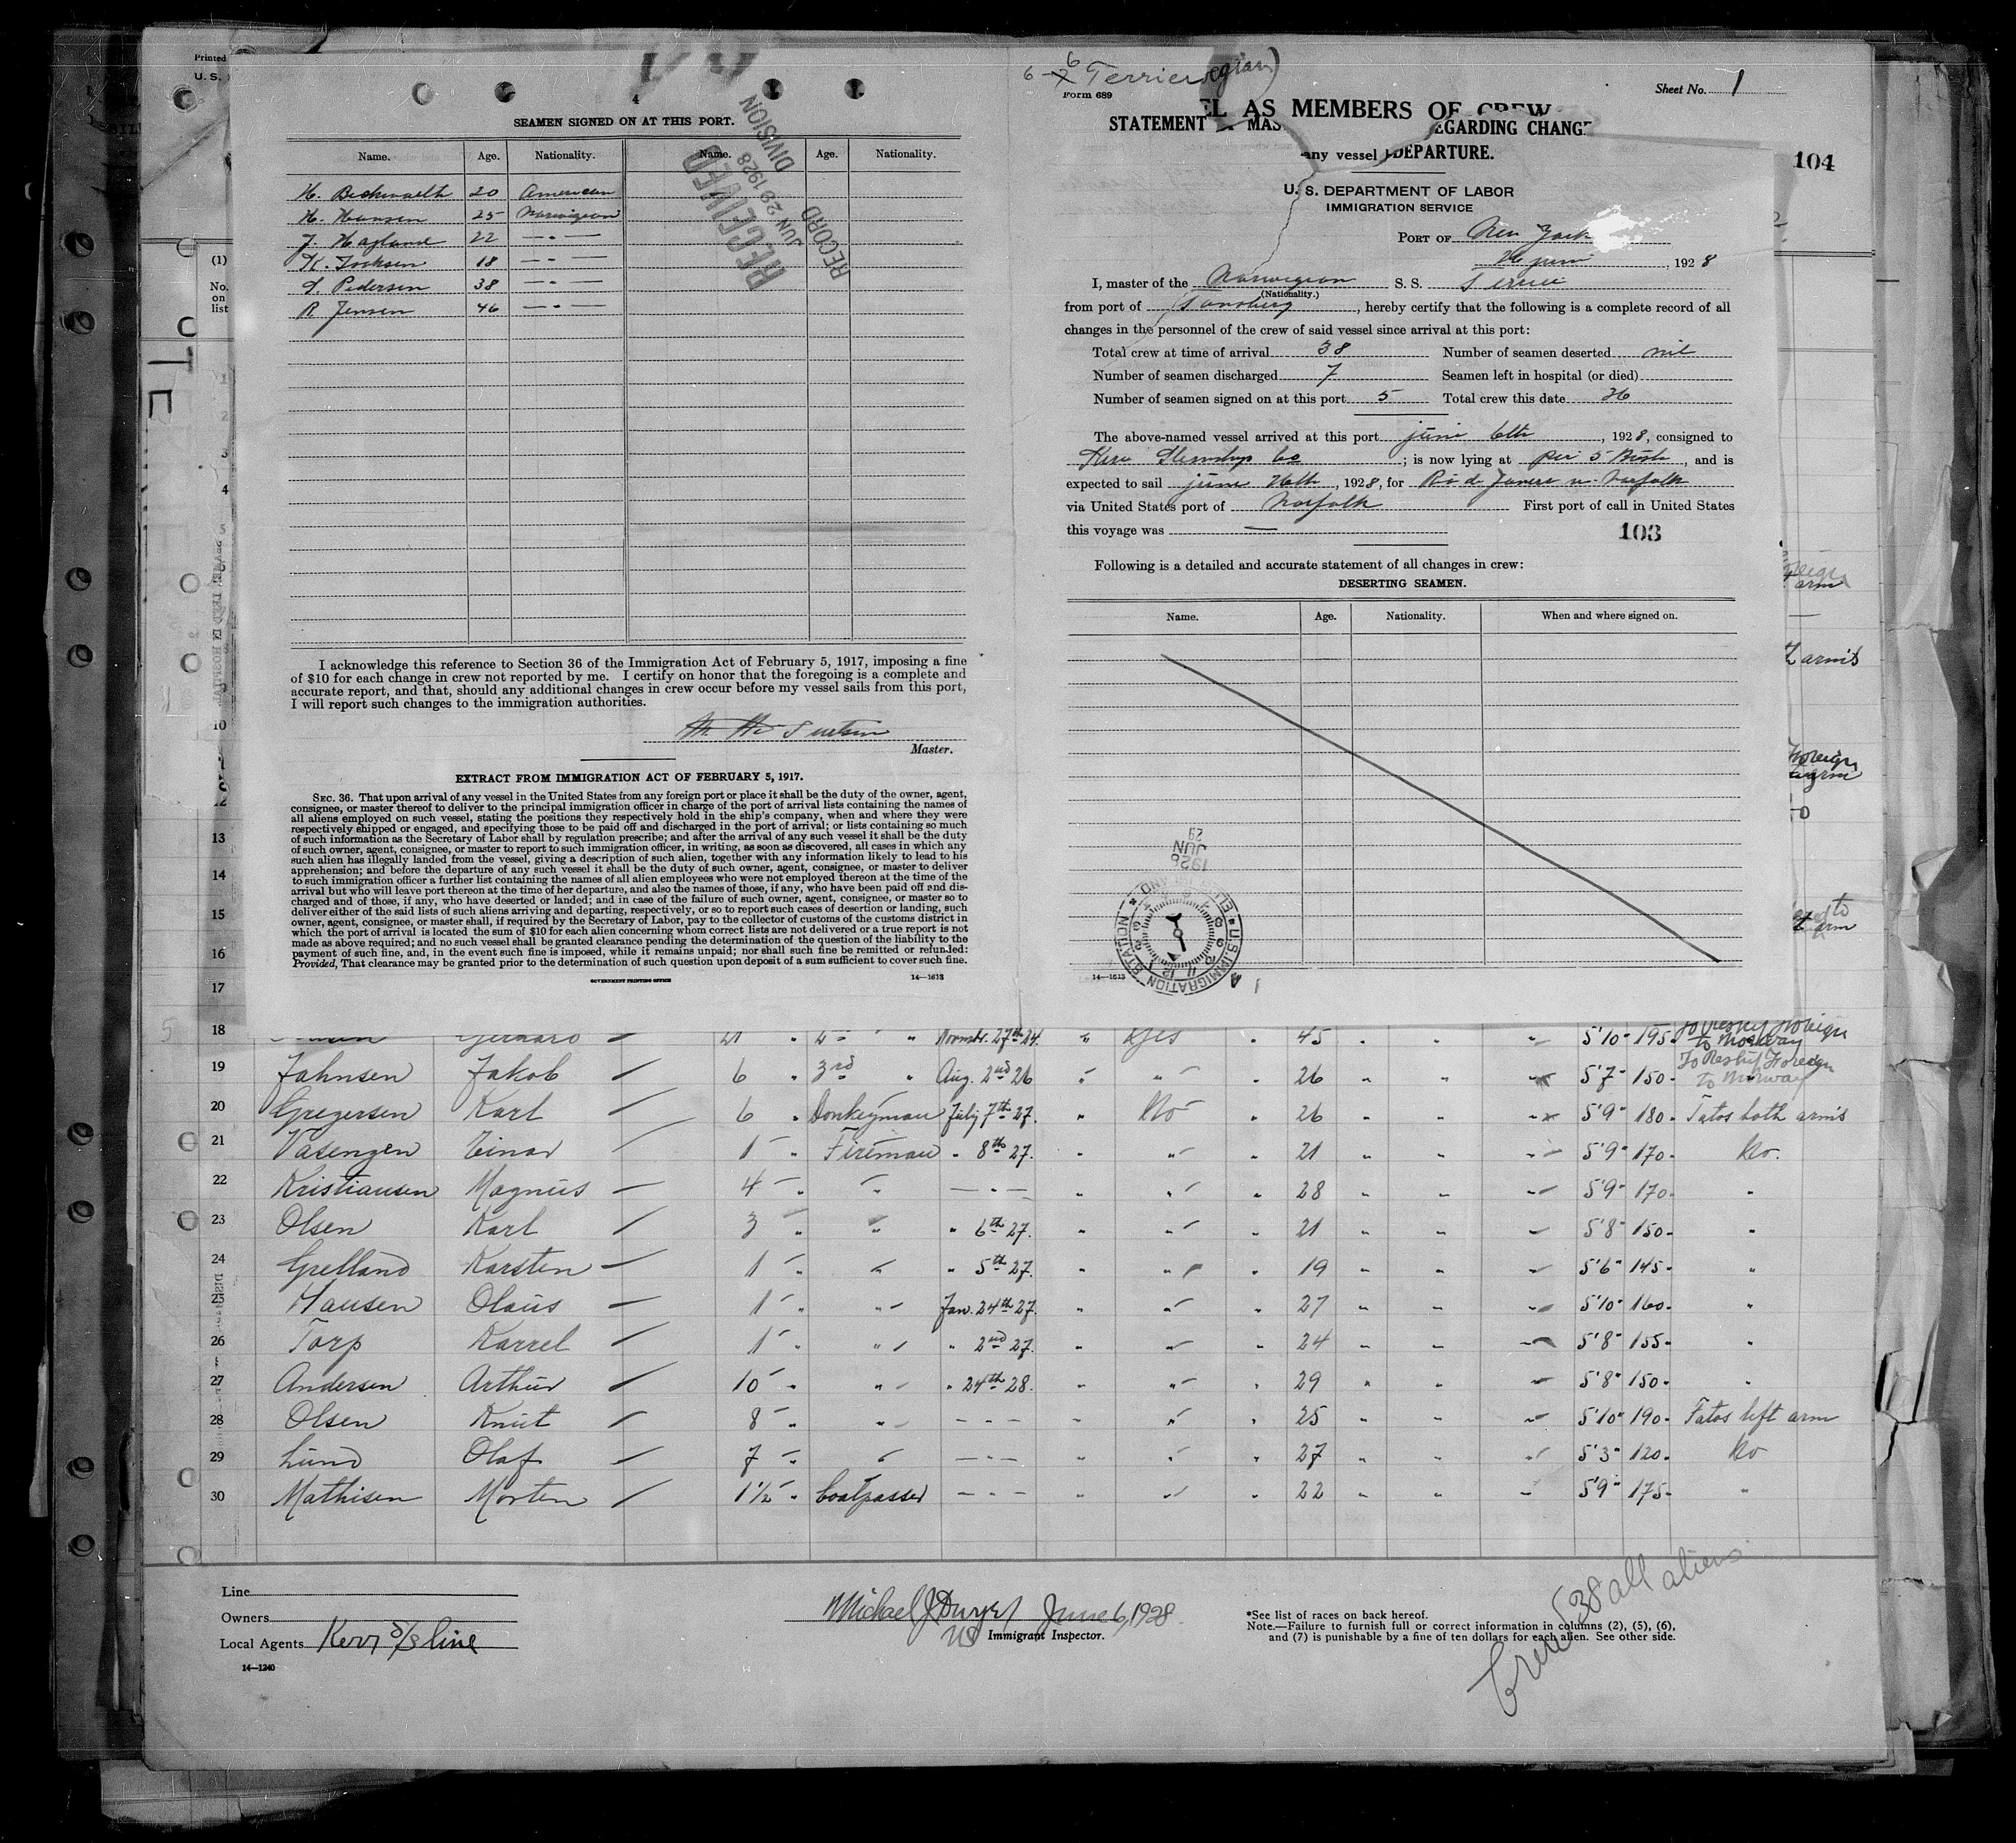 Printed
U. S.
4
SEAMEN SIGNED ON AT THIS PORT.
Name. Age. Nationality. Name. Age. Nationality.
RECEIVED
JUN 29 1928
RECORD DIVISION
H. 20 American
H. Hansen 25 Norwegian
J. Hagland 22 — " —
K. 18 — " —
Pedersen 38 — " —
R Jensen 46 — " —
I acknowledge this reference to Section 36 of the Immigration Act of February 5, 1917, imposing a fine
of $10 for each change in crew not reported by me. I certify on honor that the foregoing is a complete and
accurate report, and that, should any additional changes in crew occur before my vessel sails from this port,
I will report such changes to the immigration authorities.
Master.
EXTRACT FROM IMMIGRATION ACT OF FEBRUARY 5, 1917.
SEC. 36. That upon arrival of any vessel in the United States from any foreign port or place it shall be the duty of the owner, agent,
consignee, or master thereof to deliver to the principal immigration officer in charge of the port of arrival lists containing the names of
all aliens employed on such vessel, stating the positions they respectively hold in the ship's company, when and where they were
respectively shipped or engaged, and specifying those to be paid off and discharged in the port of arrival; or lists containing so much
of such information as the Secretary of Labor shall by regulation prescribe; and after the arrival of any such vessel it shall be the duty
of such owner, agent, consignee, or master to report to such immigration officer, in writing, as soon as discovered, all cases in which any
such alien has illegally landed from the vessel, giving a description of such alien, together with any information likely to lead to his
apprehension; and before the departure of any such vessel it shall be the duty of such owner, agent, consignee, or master to deliver
to such immigration officer a further list containing the names of all alien employees who were not employed thereon at the time of the
arrival but who will leave port thereon at the time of her departure, and also the names of those, if any, who have been paid off and dis-
charged and of those, if any, who have deserted or landed; and in case of the failure of such owner, agent, consignee, or master so to
deliver either of the said lists of such aliens arriving and departing, respectively, or so to report such cases of desertion or landing, such
owner, agent, consignee, or master shall, if required by the Secretary of Labor, pay to the collector of customs of the customs district in
which the port of arrival is located the sum of $10 for each alien concerning whom correct lists are not delivered or a true report is not
made as above required; and no such vessel shall be granted clearance pending the determination of the question of the liability to the
payment of such fine, and, in the event such fine is imposed, while it remains unpaid; nor shall such fine be remitted or refunded:
Provided, That clearance may be granted prior to the determination of such question upon deposit of a sum sufficient to cover such fine.
GOVERNMENT PRINTING OFFICE 14—1613
6 Terrier
Form 689
Sheet No. 1
EL AS MEMBERS OF CREW
STATEMENT MAS EGARDING CHANG
any vessel DEPARTURE.
104
U. S. DEPARTMENT OF LABOR
IMMIGRATION SERVICE
PORT OF New York
26 juni, 1928
I, master of the Norwegian S. S. Terrier
(Nationality.)
from port of Tønsberg, hereby certify that the following is a complete record of all
changes in the personnel of the crew of said vessel since arrival at this port:
Total crew at time of arrival 38 Number of seamen deserted nil
Number of seamen discharged 7 Seamen left in hospital (or died)
Number of seamen signed on at this port 5 Total crew this date 36
The above-named vessel arrived at this port juni 6th, 1928, consigned to
Kerr Steamship Co; is now lying at pier 5 Bush, and is
expected to sail june 26th, 1928, for Rio de Janero v. Norfolk
via United States port of Norfolk First port of call in United States
this voyage was —
103
Following is a detailed and accurate statement of all changes in crew:
DESERTING SEAMEN.
Name. Age. Nationality. When and where signed on.
1928 JUN 29
U.S. IMMIGRATION STATION
14—1613
(1)
No.
on
list
18 21 " 2nd " Novmbr. 27th 24. " Yes " 45 " " " 5'10" 195 To Reship Foreign to Norway
19 Jahnsen Jakob 6 " 3rd " Aug. 2nd 26 " " " 26 " " " 5'7" 150 To Reship Foreign to Norway
20 Gregersen Karl 6 " Donkeyman July 7th 27. " No " 26 " " " 5'9" 180 Tatos both arms
21 Vasengen Einar 1 " Fireman " 8th 27. " " " 21 " " " 5'9" 170 No.
22 Kristiansen Magnus 4 " " — " — " " 28 " " " 5'9" 170 "
23 Olsen Karl 3 " " " 6th 27. " " " 21 " " " 5'8" 150 "
24 Grelland Karsten 1 " " " 5th 27. " " " 19 " " " 5'6" 145 "
25 Hansen Olaus 1 " " Jan. 24th 27. " " " 27 " " " 5'10" 160 "
26 Torp Karrel 1 " " " 2nd 27. " " " 24 " " " 5'8" 155 "
27 Andersen Arthur 10 " " " 24th 28. " " " 29 " " " 5'8" 150 "
28 Olsen Knut 8 " " — " — " " " 25 " " " 5'10" 190 Tatos left arm
29 Lund Olaf 7 " " — " — " " " 27 " " " 5'3" 120 No
30 Mathisen Morten 1½ " Coalpasser — " — " " " 22 " " " 5'9" 175 "
Line
Owners
Local Agents Kerr S/S line
14—1240
Michael J Dwyer June 6, 1928
US Immigrant Inspector.
*See list of races on back hereof.
Note.—Failure to furnish full or correct information in columns (2), (5), (6),
and (7) is punishable by a fine of ten dollars for each alien. See other side.
Crew 38 all aliens